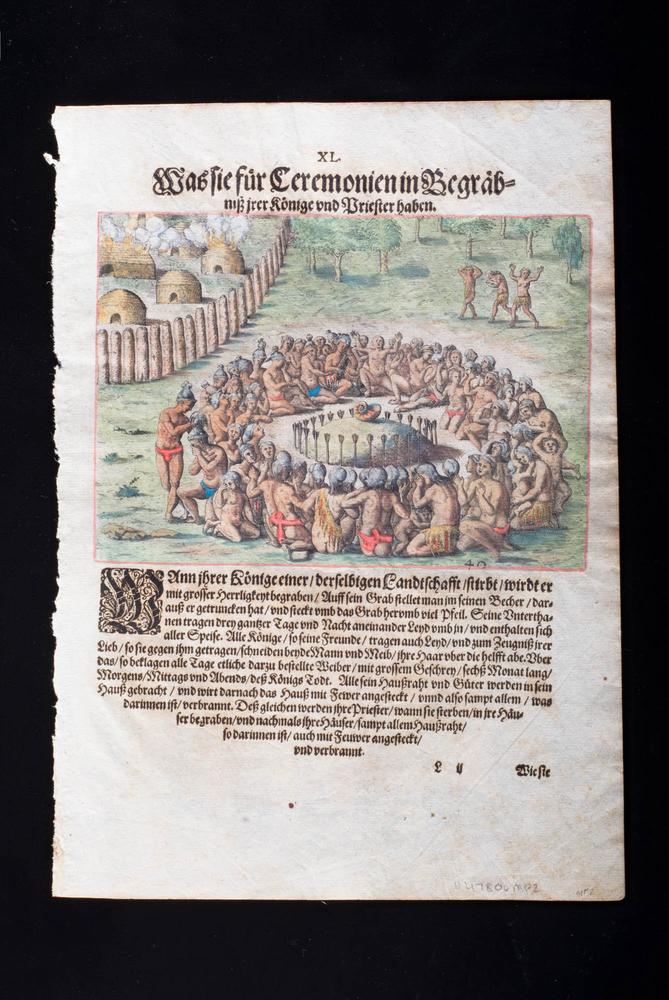 XL.
Was sie für Ceremonien in Begräb-
niß jrer Könige vnd Priester haben.
40
WAnn jhrer Könige einer / derselbigen Landtschafft / stirbt / wirdt er
mit grosser Herrligkeyt begraben / Auff sein Grab stellet man jm seinen Becher / dar-
auß er getruncken hat / vnd steckt vmb das Grab herumb viel Pfeil. Seine Vntertha-
nen tragen drey gantzer Tage vnd Nacht aneinander Leyd vmb jn / vnd enthalten sich
aller Speise. Alle Könige / so seine Freunde / tragen auch Leyd / vnd zum Zeugniß jrer
Lieb / so sie gegen jhm getragen / schneiden beyde Mann vnd Weib / jhre Haar vber die helfft abe. Vber
das / so beklagen alle Tage etliche darzu bestellte Weiber / mit grossem Geschrey / sechß Monat lang /
Morgens / Mittags vnd Abends / deß Königs Todt. Alle sein Haußraht vnd Güter werden in sein
Hauß gebracht / vnd wirt darnach das Hauß mit Fewer angesteckt / vnnd also sampt allem / was
darinnen ist / verbrannt. Deß gleichen werden jhre Priester / wann sie sterben / in jre Häu-
ser begraben / vnd nachmals jhre Häuser / sampt allem Haußraht /
so darinnen ist / auch mit Feuwer angesteckt /
vnd verbrannt.
L ij Wie sie